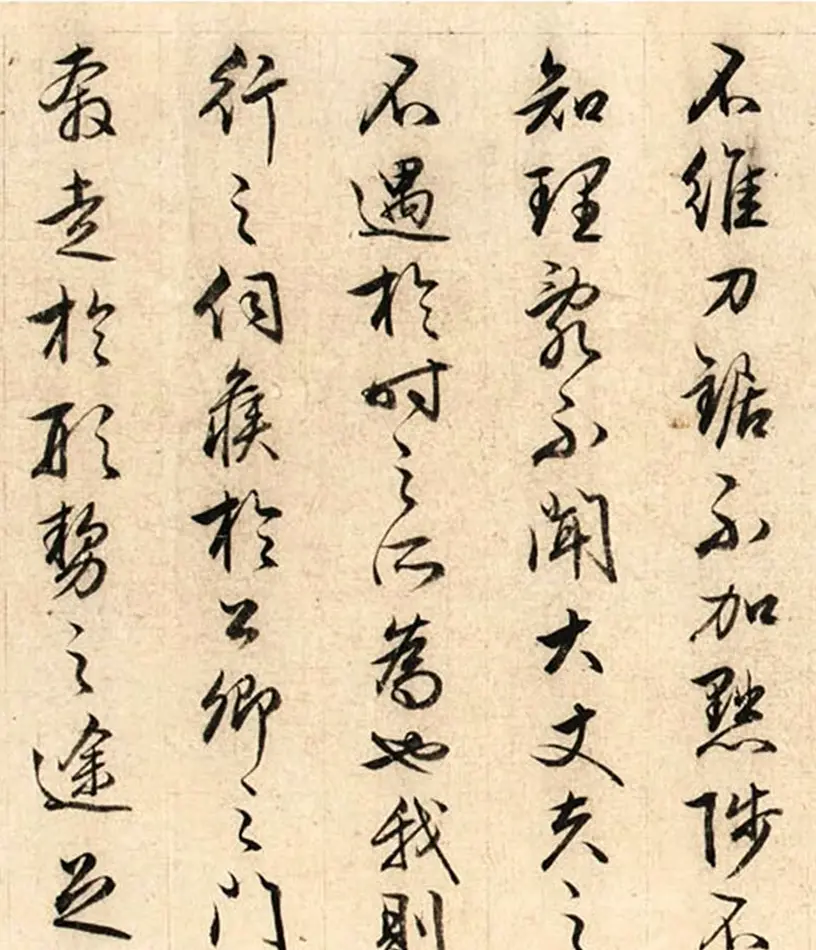 不維刀鋸不加黜陟不
知理亂不聞大丈夫之
不遇於時之所為也我則
行之伺候於公卿之門
奔走於形勢之途足